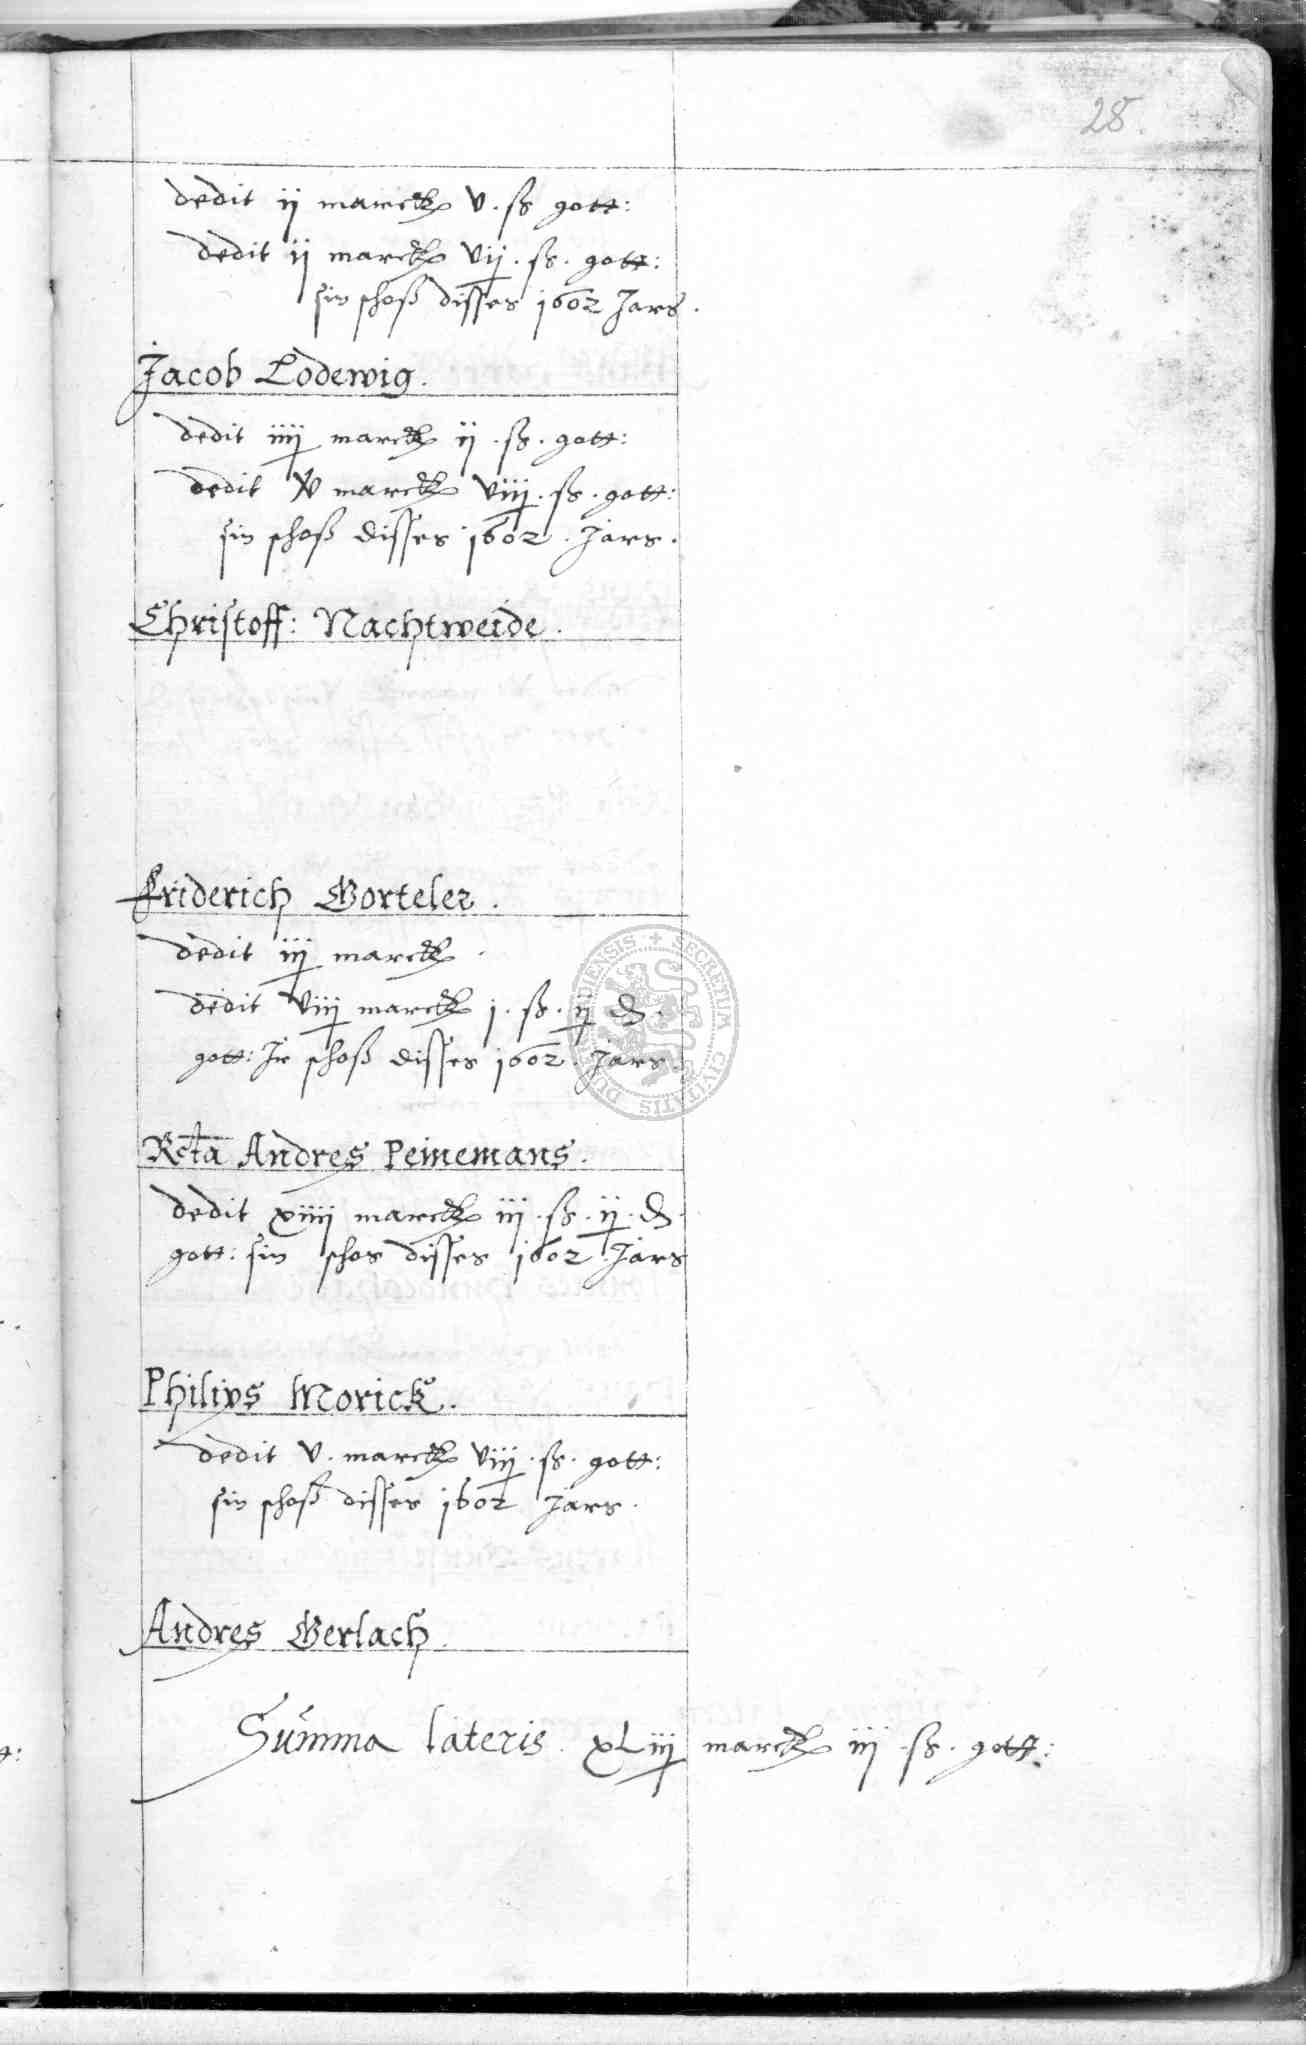 28.
dedit ij marck v. ß gott:
dedit ij marck vij. ß. gott:
sin schoß disses 1602 Jars.
Jacob Lodewig.
dedit iiij marck ij. ß. gott:
dedit v marck viij. ß. gott:
sin schoß disses 1602. Jars.
Christoff: Nachtweide.
Friderich Gorteler.
dedit iij marck.
dedit viij marck j. ß. ij d.
gott: Jr schoß disses 1602. Jars.
Rcta Andres Peinemans.
dedit xiiij marck iij. ß. ij. d.
gott: sin schos disses 1602. Jars
Philips Morick.
dedit v. marck viij. ß. gott:
sin schoß disses 1602 Jars.
Andres Gerlach.
Summa lateris. xLiij marck iij. ß. gott:
SECRETUM CIVITATIS DUDERSTADIENSIS